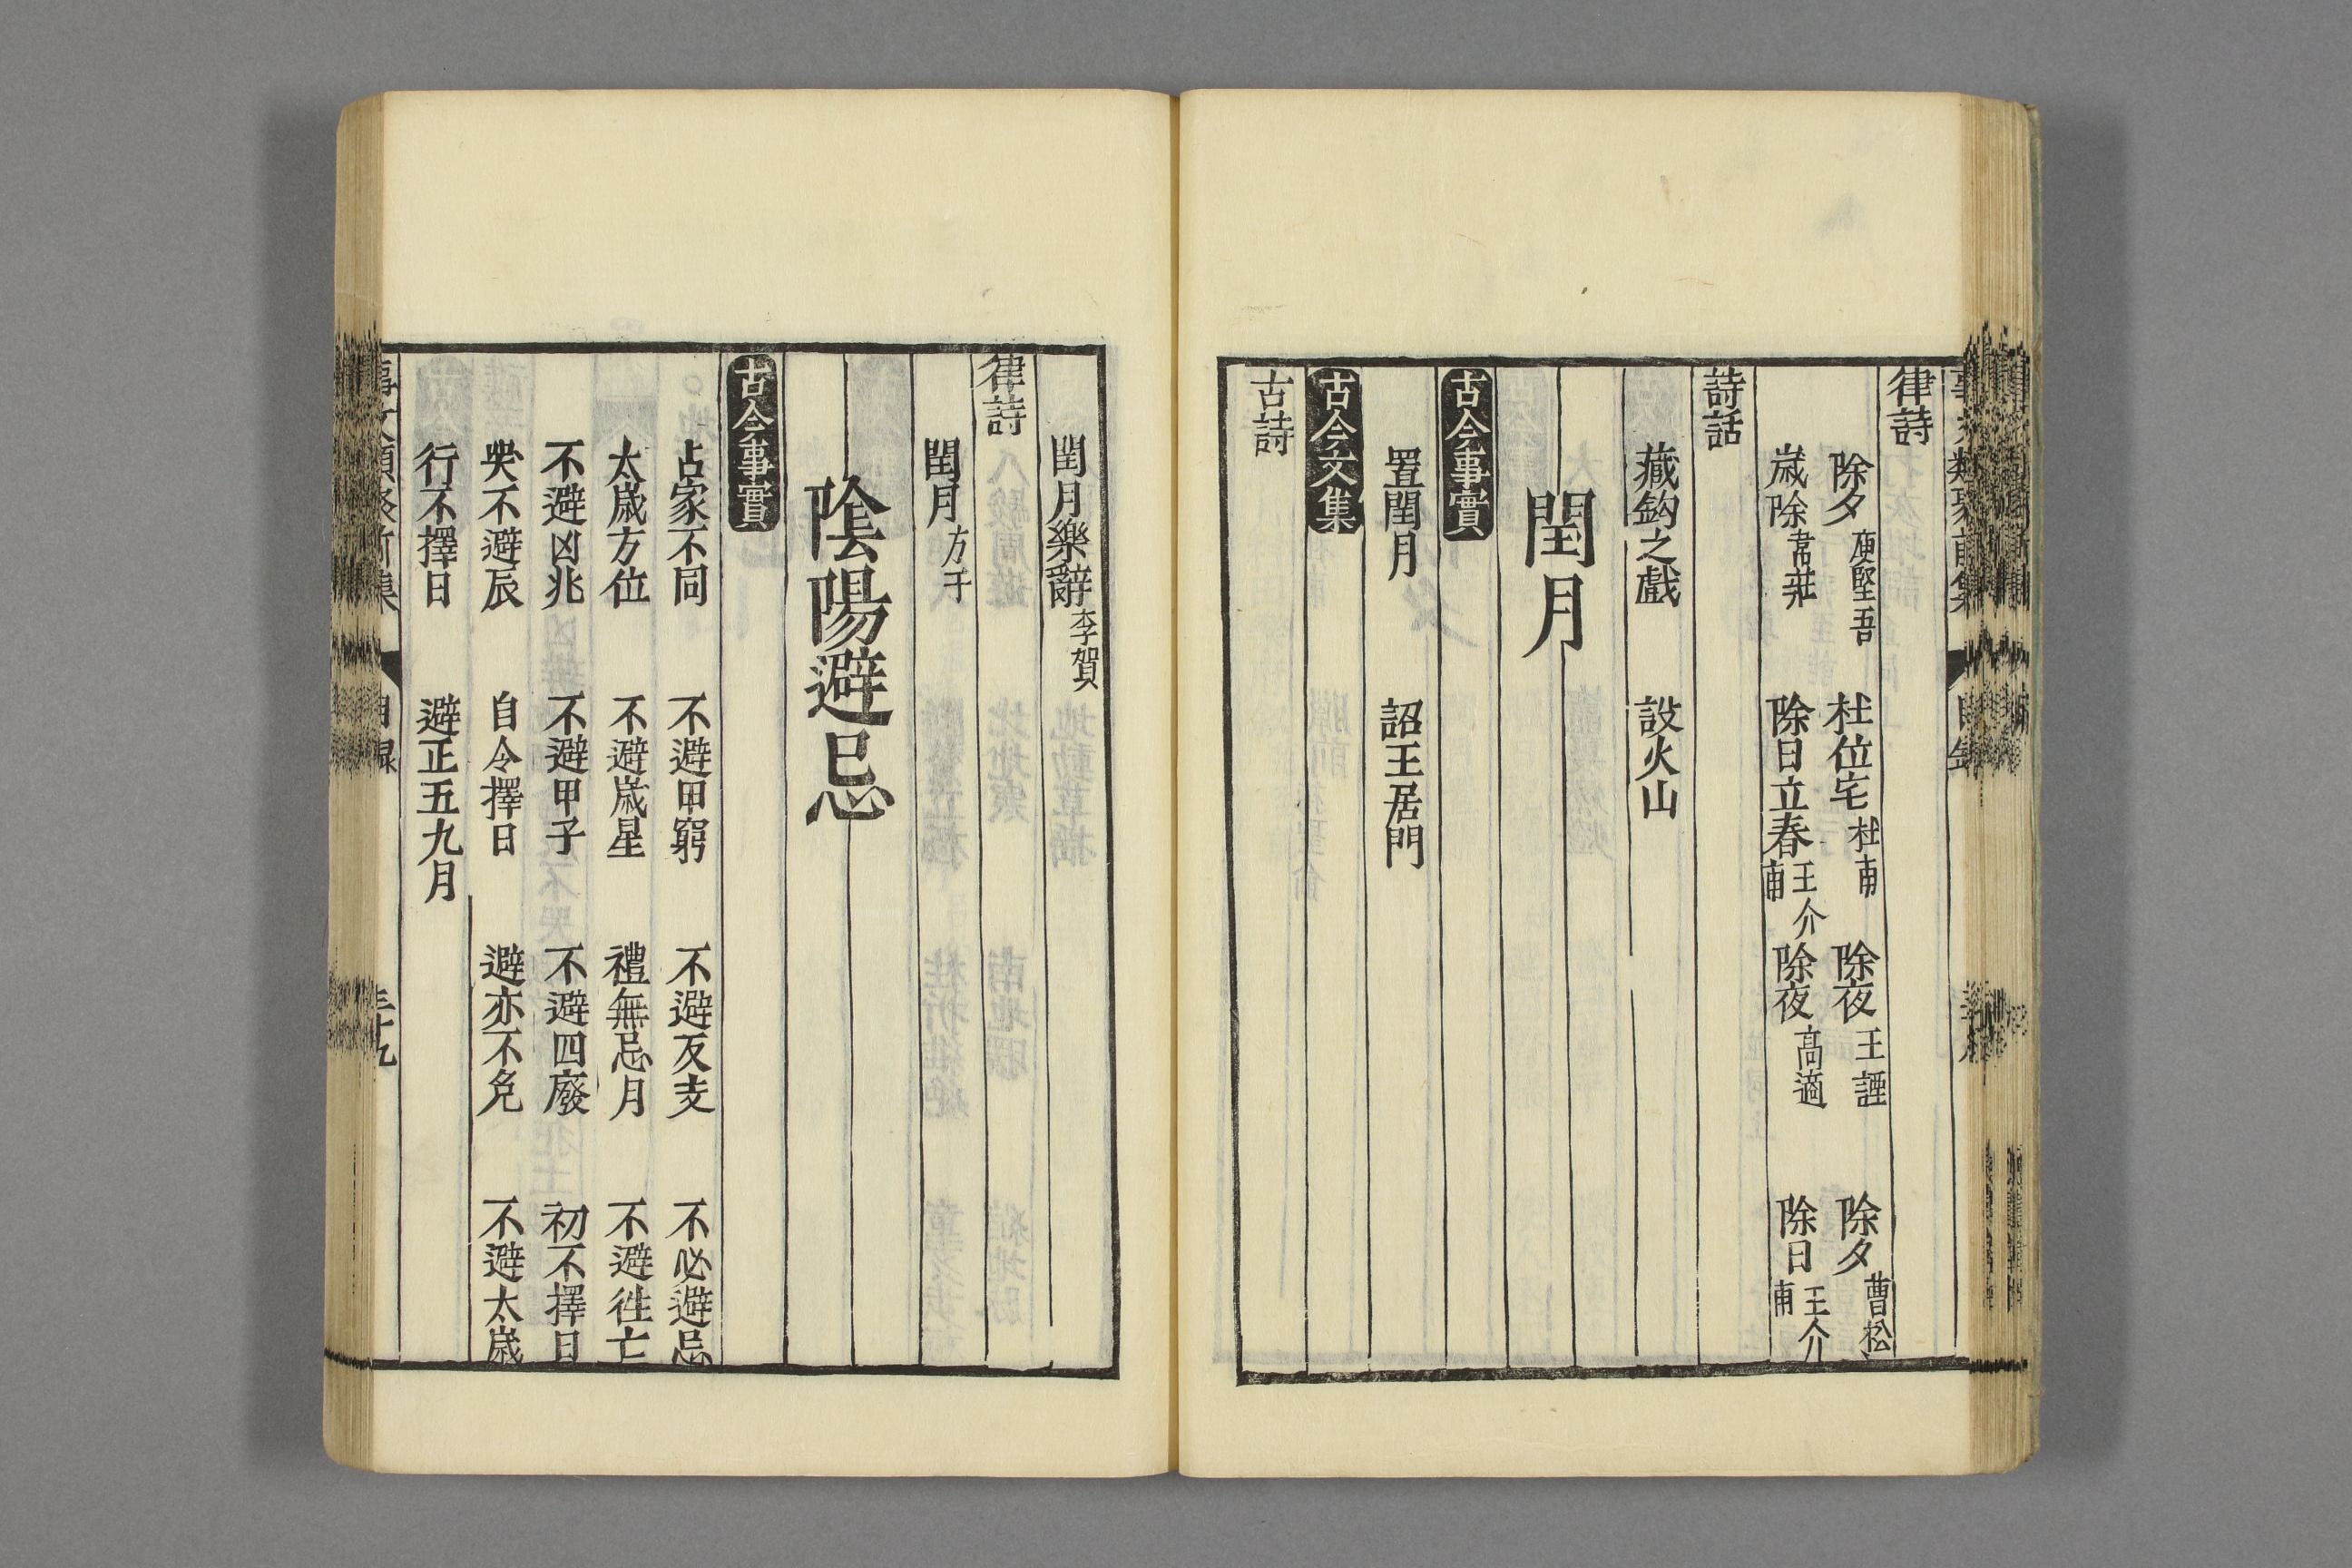 律詩
除夕 庾堅吾 杜位宅 杜甫 除夜 王諲 除夕 曹松
歲除 韋莊 除日立春 王介甫 除夜 高適 除日 王介甫
詩話
藏鈎之戲 設火山
閏月
古今事實
置閏月 詔王居門
古今文集
古詩
閏月樂辭 李賀
律詩
閏月 方干
陰陽避忌
古今事實
占家不同 不避甲窮 不避反支 不必避忌
太歲方位 不避歲星 禮無忌月 不避徃亡
不避凶兆 不避甲子 不避四廢 初不擇日
哭不避辰 自令擇日 避亦不免 不避太歲
行不擇日 避正五九月